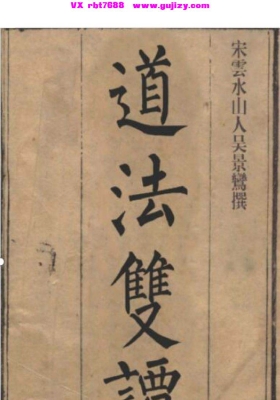 VX rbt7688 www.gujizy.com
宋雲水山人吳景鸞撰
道法雙譚